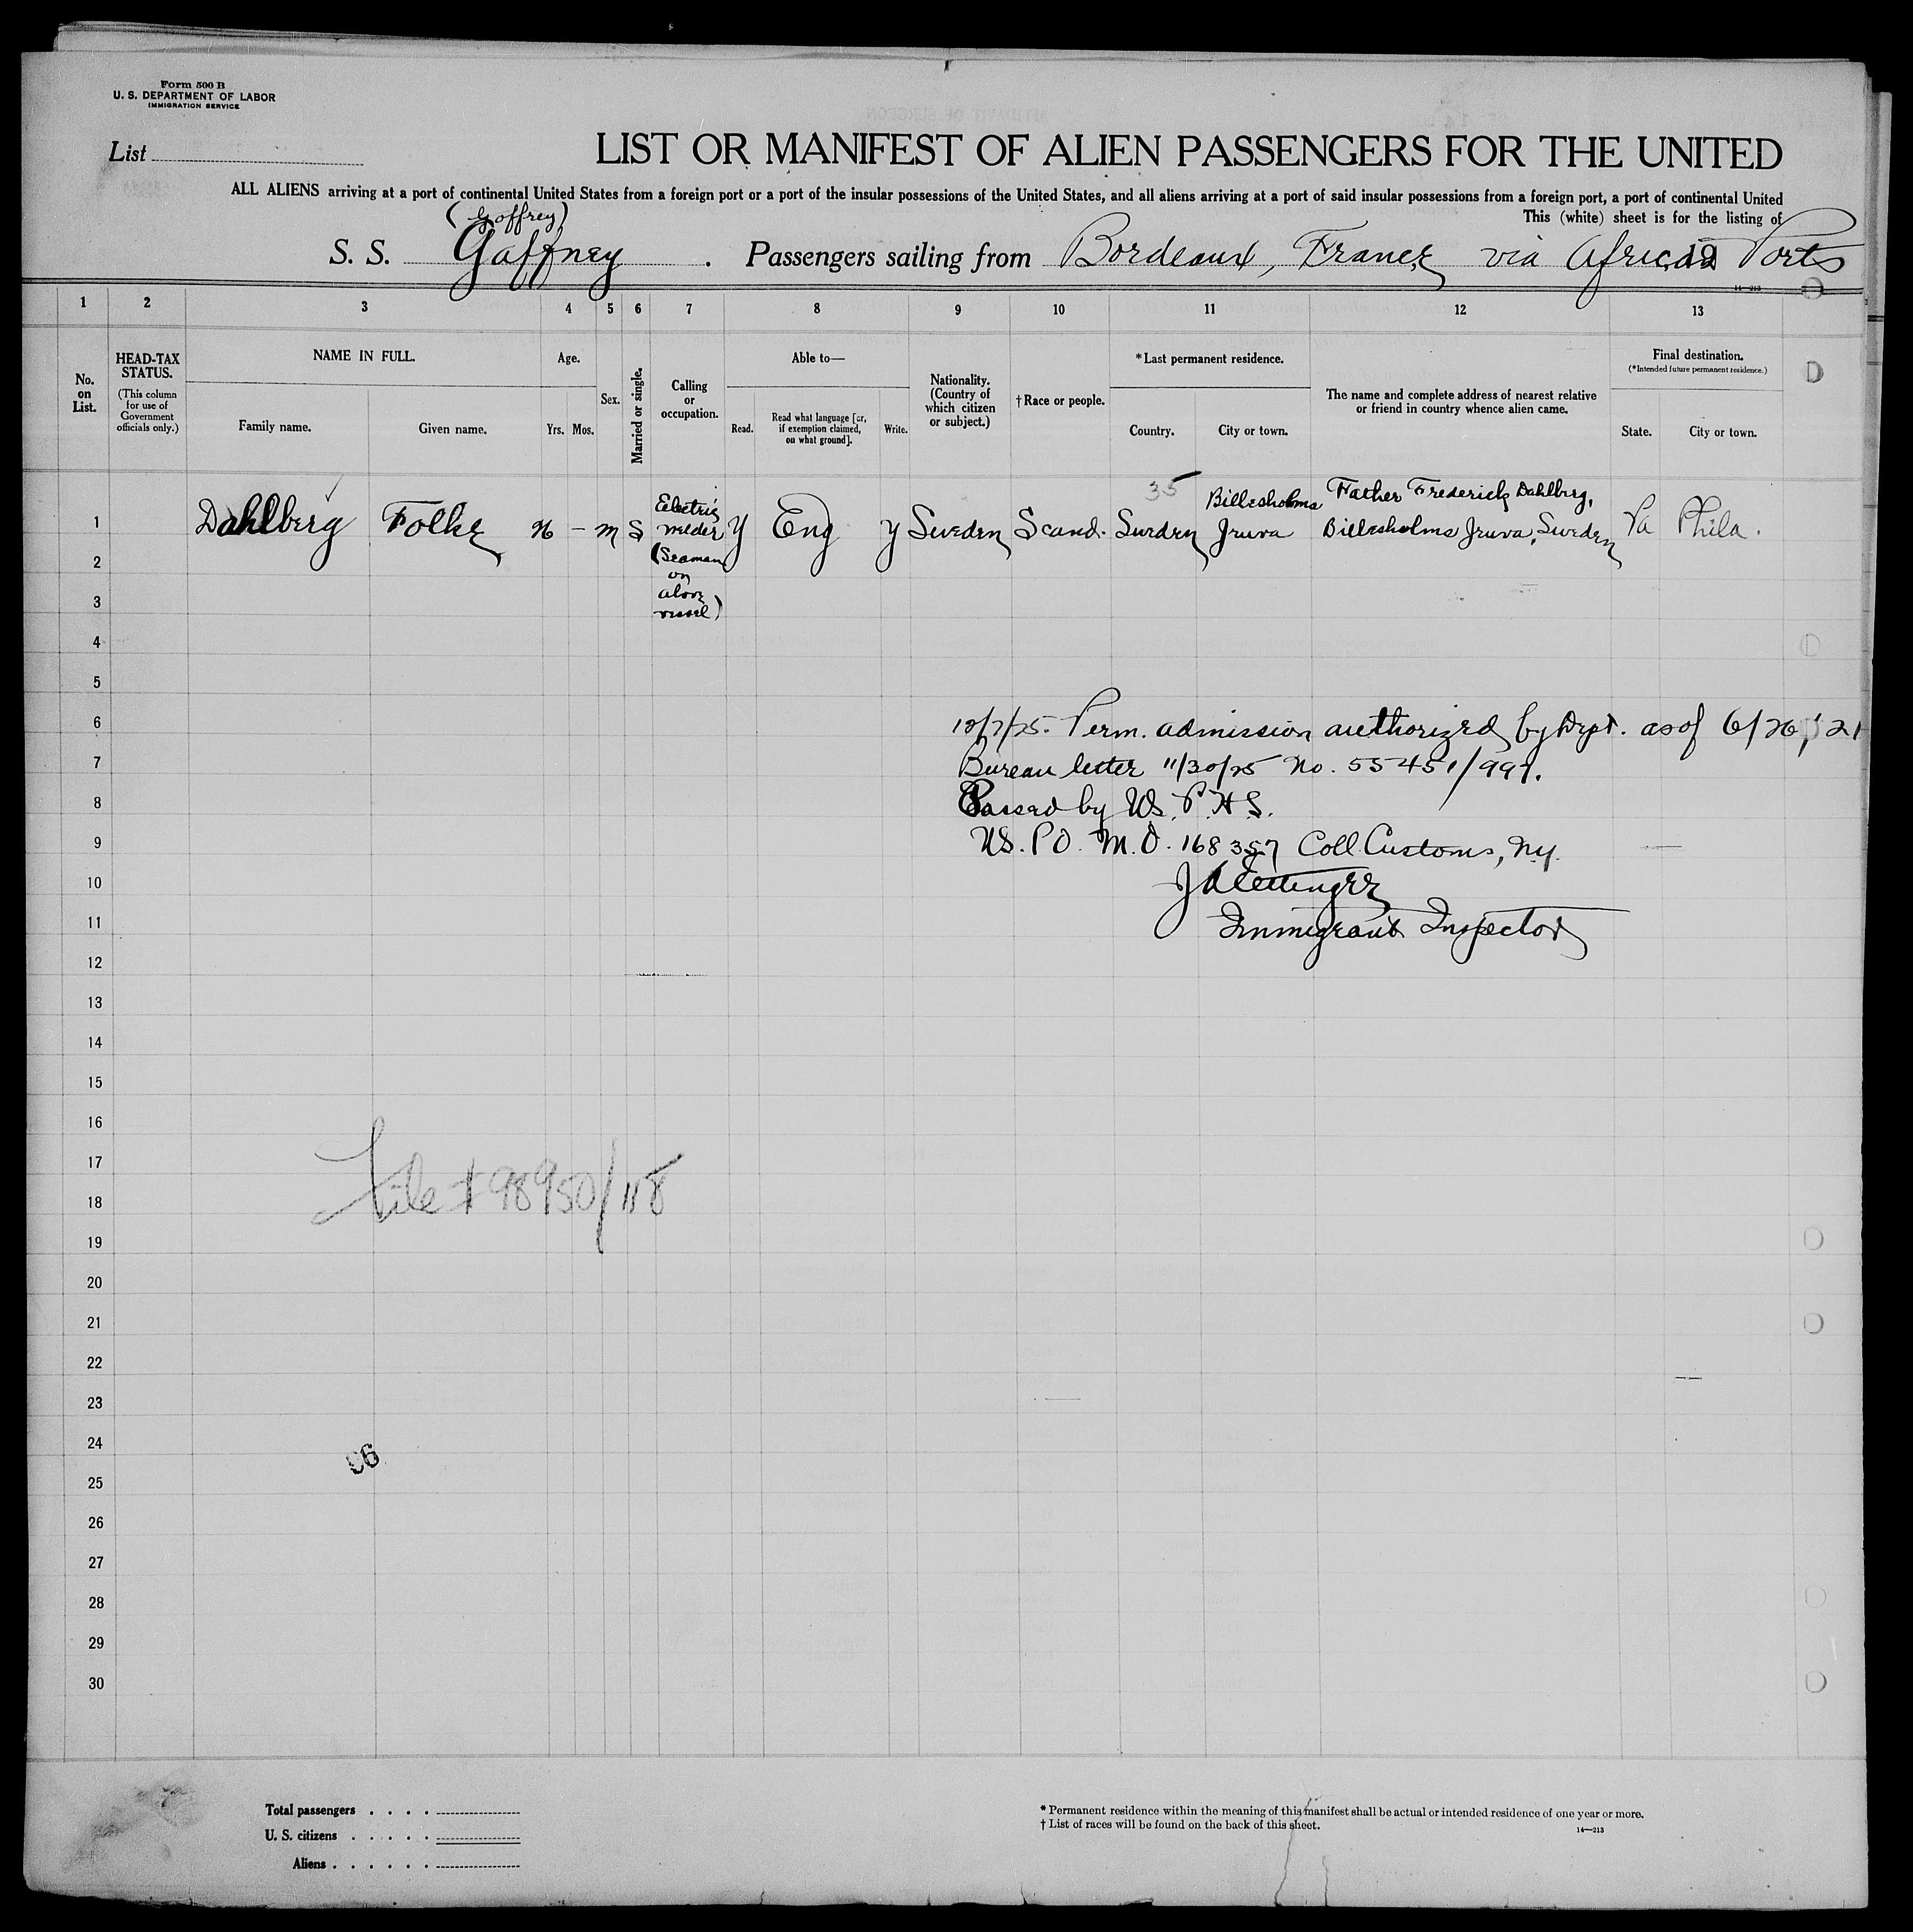 Form 500 B
U. S. DEPARTMENT OF LABOR
IMMIGRATION SERVICE
List
LIST OR MANIFEST OF ALIEN PASSENGERS FOR THE UNITED
ALL ALIENS arriving at a port of continental United States from a foreign port or a port of the insular possessions of the United States, and all aliens arriving at a port of said insular possessions from a foreign port, a port of continental United
This (white) sheet is for the listing of
(Goffrey)
S. S. Gaffney . Passengers sailing from Bordeaux, France via African Ports
14—213
1 2 3 4 5 6 7 8 9 10 11 12 13
No. on List.
HEAD-TAX STATUS.
(This column for use of Government officials only.)
NAME IN FULL.
Family name. Given name.
Age.
Yrs. Mos.
Sex.
Married or single.
Calling or occupation.
Able to—
Read. Read what language [or, if exemption claimed, on what ground]. Write.
Nationality. (Country of which citizen or subject.)
†Race or people.
*Last permanent residence.
Country. City or town.
The name and complete address of nearest relative or friend in country whence alien came.
Final destination.
(*Intended future permanent residence.)
State. City or town.
35
1 Dahlberg Folke – m S Electric welder (Seaman on above vessel) y Eng y Sweden Scand. Sweden Billesholms Jruva Father Frederick Dahlberg, Billesholms Jruva, Sweden Pa Phila.
2
3
4
5
6
12/7/25. Perm. admission authorized by Dept. as of 6/26/21
7
Bureau letter 11/30/25 No. 55451/997.
8
Passed by US. P. H S.
9
US. P O. M. O. 168357 Coll Customs, N.Y.
10
11
Immigrant Inspector
12
13
14
15
16
17
File # 98950/118
18
19
20
21
22
23
24
96
25
26
27
28
29
30
Total passengers . . . .
U. S. citizens . . . . .
Aliens . . . . . .
* Permanent residence within the meaning of this manifest shall be actual or intended residence of one year or more.
† List of races will be found on the back of this sheet.
14—213